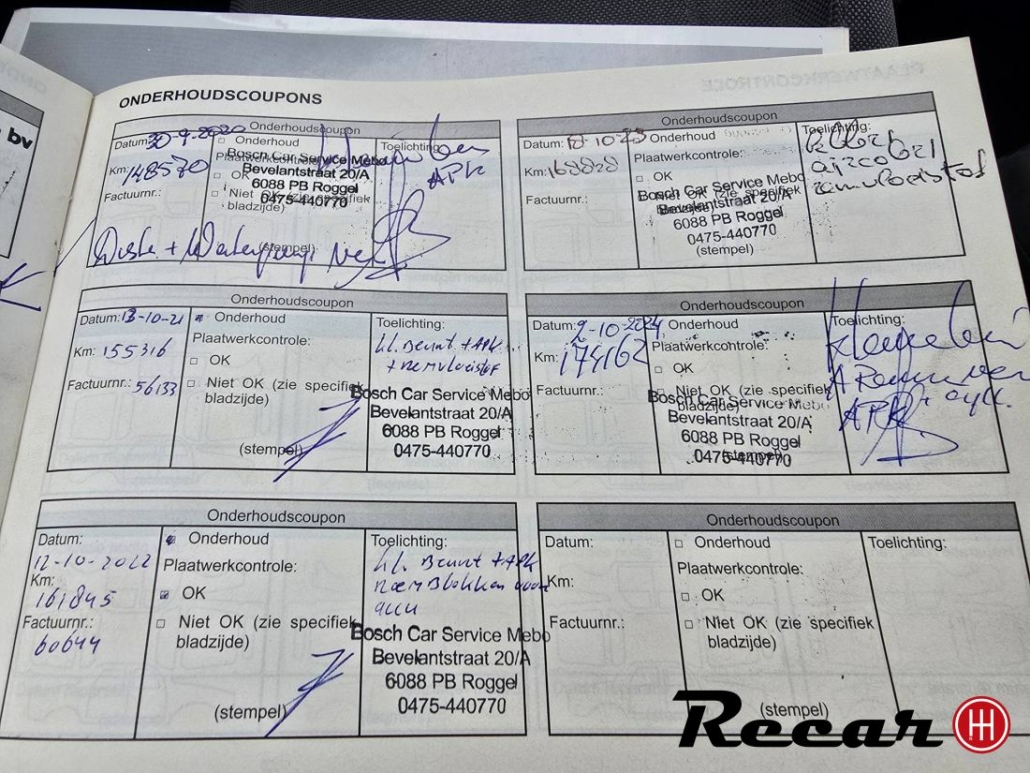 ONDERHOUDSCOUPONS
Onderhoudscoupon
Datum: 30-9-2020
Onderhoud
Km: 148570
Plaatwerkcontrole:
OK
APK
Factuurnr.:
Niet OK (zie specifiek
bladzijde)
Bosch Car Service Mebo
Bevelantstraat 20/A
6088 PB Roggel
0475-440770
(stempel)
Onderhoudscoupon
Datum: 13-10-21
Onderhoud
Toelichting:
Km: 155316
Plaatwerkcontrole:
kl. Beurt + APK
OK
+ remvloeistof
Factuurnr.: 56133
Niet OK (zie specifiek
bladzijde)
(stempel)
Bosch Car Service Mebo
Bevelantstraat 20/A
6088 PB Roggel
0475-440770
Onderhoudscoupon
Datum:
12-10-2022
Onderhoud
Toelichting:
Km:
161845
Plaatwerkcontrole:
kl. Beurt + APK
OK
Remblokken voor
accu
Factuurnr.:
60644
Niet OK (zie specifiek
bladzijde)
(stempel)
Bosch Car Service Mebo
Bevelantstraat 20/A
6088 PB Roggel
0475-440770
Onderhoudscoupon
Datum: 10-23
Onderhoud
Toelichting:
Km: 168828
Plaatwerkcontrole:
OK
remvloeistof
Factuurnr.:
Niet OK (zie specifiek
bladzijde)
Bosch Car Service Mebo
Bevelantstraat 20/A
6088 PB Roggel
0475-440770
(stempel)
Onderhoudscoupon
Datum: 2-10-2024
Onderhoud
Toelichting:
Km: 174162
Plaatwerkcontrole:
OK
Factuurnr.:
Niet OK (zie specifiek
bladzijde)
APK
Bosch Car Service Mebo
Bevelantstraat 20/A
6088 PB Roggel
0475-440770
(stempel)
Onderhoudscoupon
Datum:
Onderhoud
Toelichting:
Plaatwerkcontrole:
Km:
OK
Factuurnr.:
Niet OK (zie specifiek
bladzijde)
(stempel)
Recar